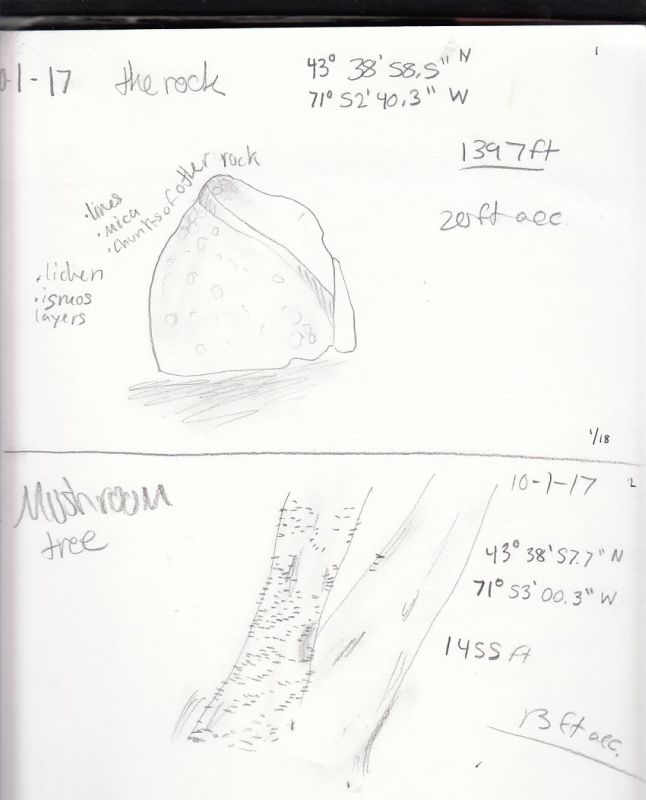 1
0-1-17 the rock
43° 38' 58.5" N
71° 52' 40.3" W
1397ft
20ft acc.
• lines
• mica
• chunks of other rock
• lichen
• ignuos
layers
1/18
Mushroom
tree
10-1-17
2
43° 38' 57.7" N
71° 53' 00.3" W
1455 ft
13 ft acc.